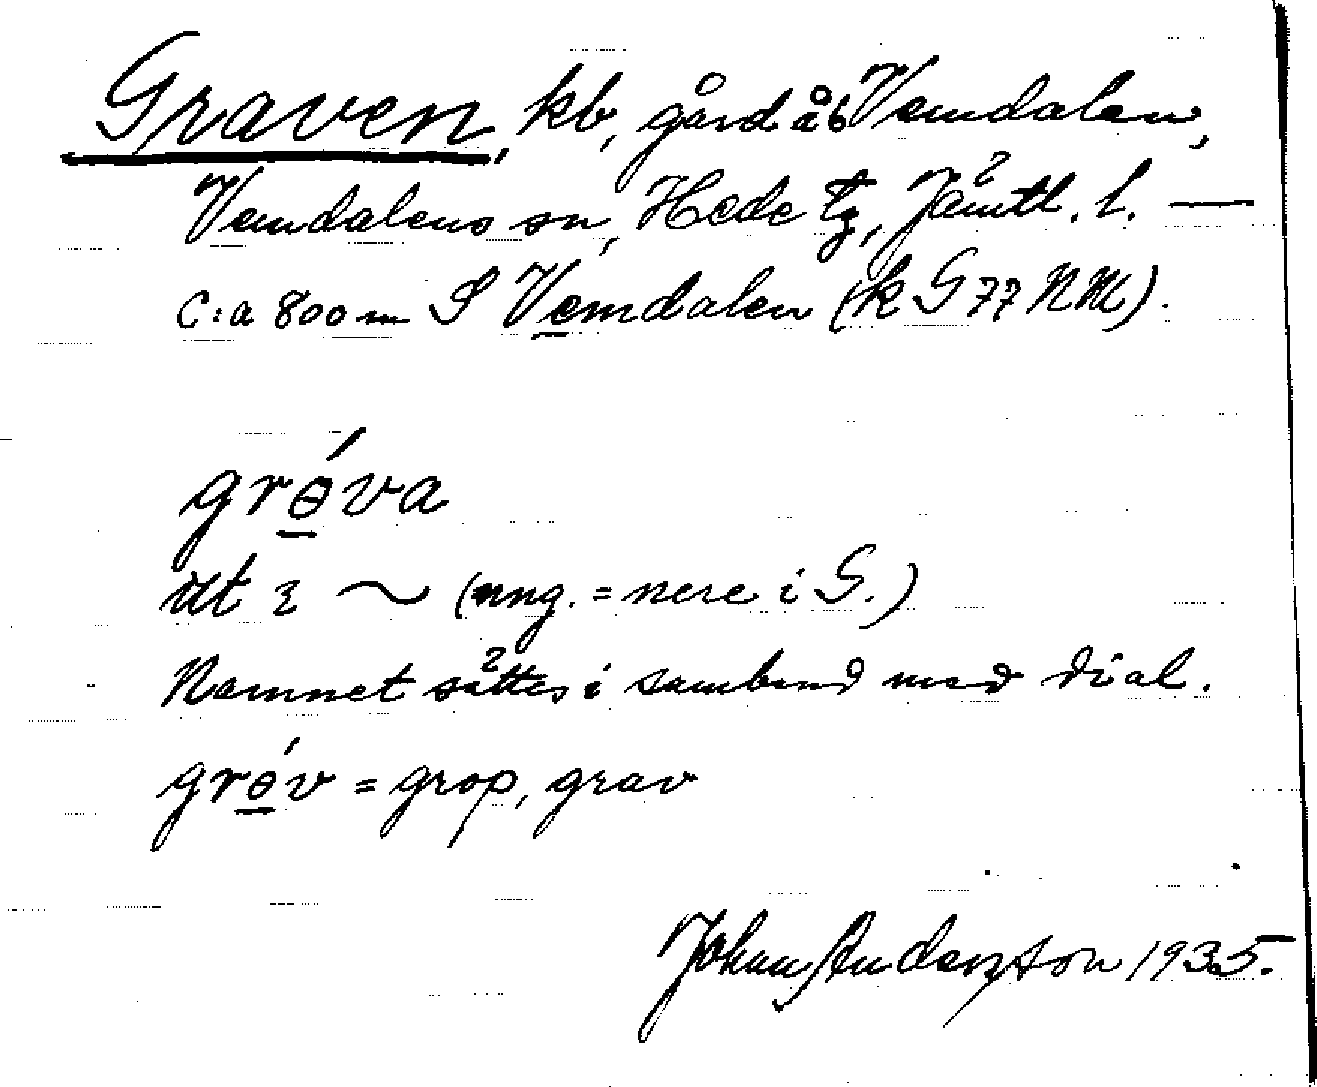 Graven, kb, gård åb Vemdalen,
Vemdalens sn, Hede tg, Jämtl. l. —
C:a 800 m S Vemdalen (k G 77 NM).
grɵ́va
ut ɩ ~ (ung. = nere i G.)
Namnet sättes i samband med dial.
grɵ́v = grop, grav
Johan Anderzson 1935.